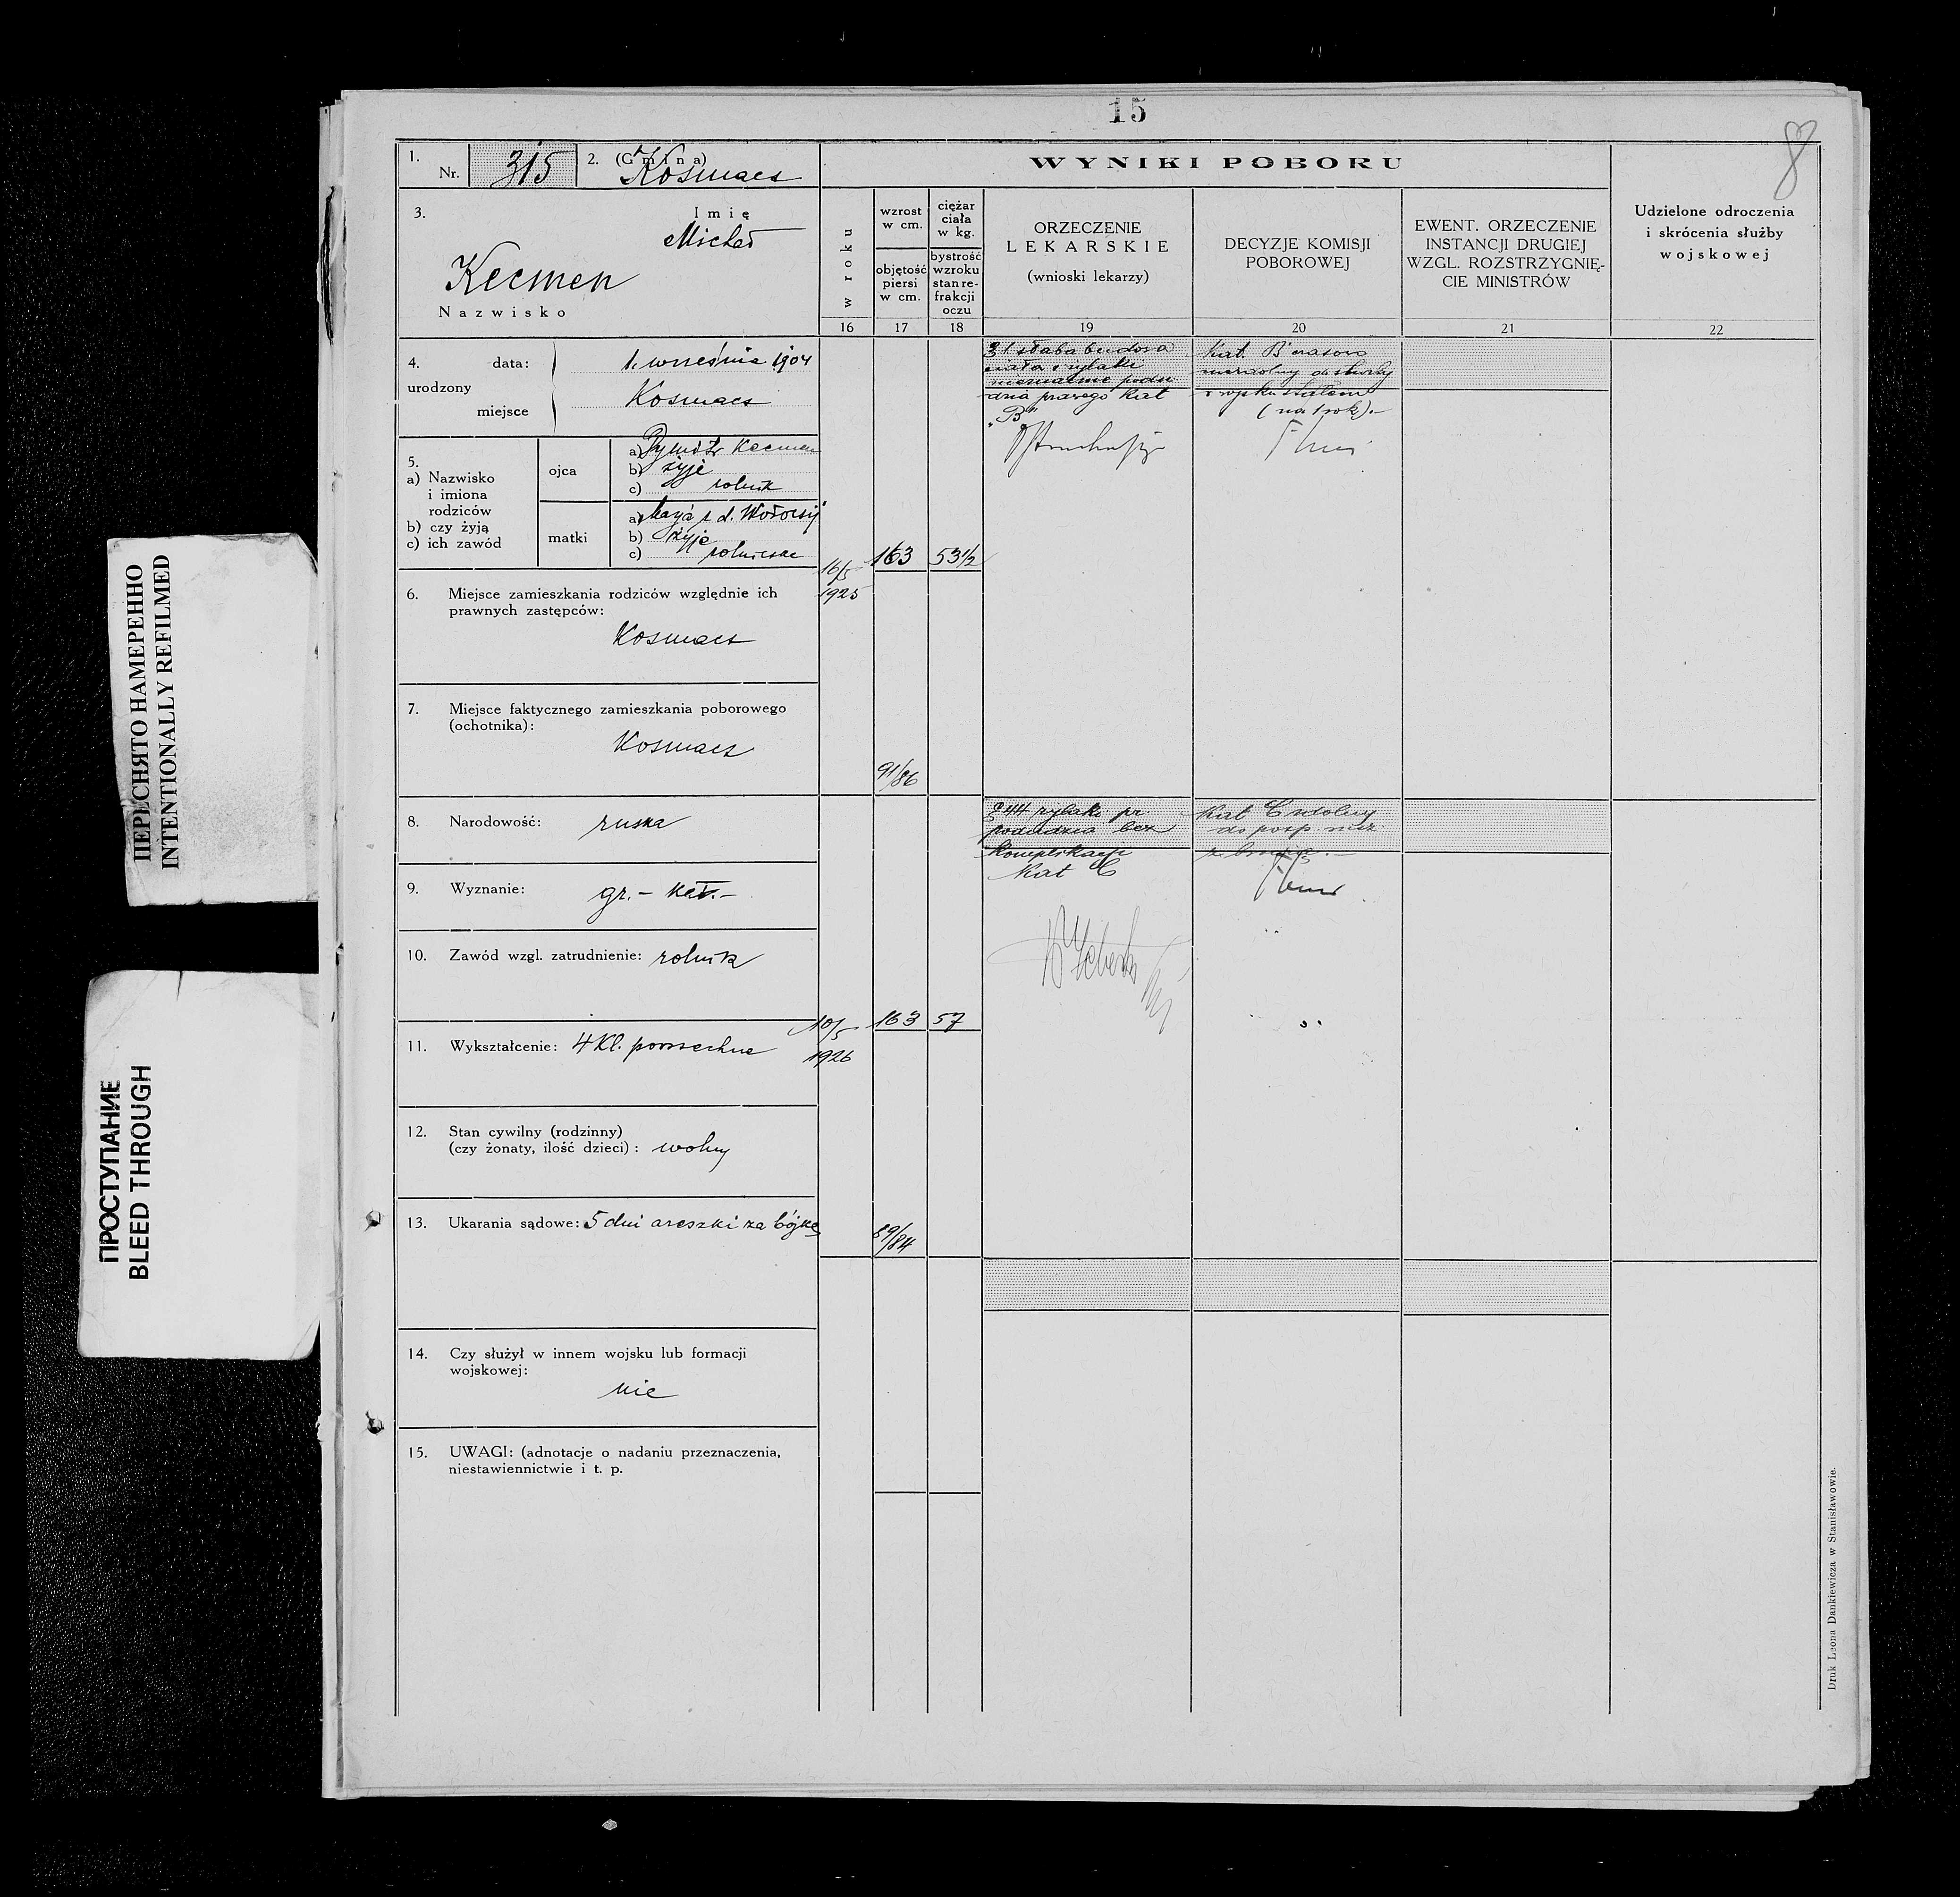 15
8
1.
Nr. 315
2. (Gmina) Kosmacz
WYNIKI POBORU
Udzielone odroczenia
i skrócenia służby
wojskowej
3.
Imię
Michał
Kecmen
Nazwisko
w roku
wzrost
w cm.
objętość
piersi
w cm.
ciężar
ciała
w kg.
bystrość
wzroku
stan re-
frakcji
oczu
ORZECZENIE
LEKARSKIE
(wnioski lekarzy)
DECYZJE KOMISJI
POBOROWEJ
EWENT. ORZECZENIE
INSTANCJI DRUGIEJ
WZGL. ROZSTRZYGNIĘ-
CIE MINISTRÓW
16 17 18 19 20 21 22
4. data: 1. września 1904
urodzony
miejsce Kosmacz
5.
a) Nazwisko
i imiona
rodziców
b) czy żyją
c) ich zawód
ojca
a) Dymitr Kecmen
b) żyje
c) rolnik
matki
a) Marja z d.
b) żyje
c) rolniczka
6. Miejsce zamieszkania rodziców względnie ich
prawnych zastępców:
Kosmacz
7. Miejsce faktycznego zamieszkania poborowego
(ochotnika):
Kosmacz
8. Narodowość: ruska
9. Wyznanie: gr. - kat. -
10. Zawód wzgl. zatrudnienie: rolnik
11. Wykształcenie: 4 Kl. powszechne
12. Stan cywilny (rodzinny)
(czy żonaty, ilość dzieci): wolny
13. Ukarania sądowe: 5 dni areszki za bójkę
14. Czy służył w innem wojsku lub formacji
wojskowej:
nie
15. UWAGI: (adnotacje o nadaniu przeznaczenia,
niestawiennictwie i t. p.
16/5
1925
163
53 1/2
91/86
§ 1 słaba budowa
ciała i żylaki
nieznaczne podu
dzia prawego Kat
"B"
Kat. B czasowo
niezdolny do służby
w wojsku stałem
(na 1 rok).-
10/5
1926
163
57
89/84
§ 44 żylaki pr
podudzia bez
komplikacji
Kat C
Kat C zdolny
do posp. rusz.
z bronią.-
Druk Leona Dankiewicza w Stanisławowie.
ПЕРЕСНЯТО НАМЕРЕННО
INTENTIONALLY REFILMED
ПРОСТУПАНИЕ
BLEED THROUGH